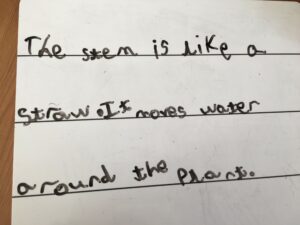 The stem is like a
straw. It moves water
around the plant.